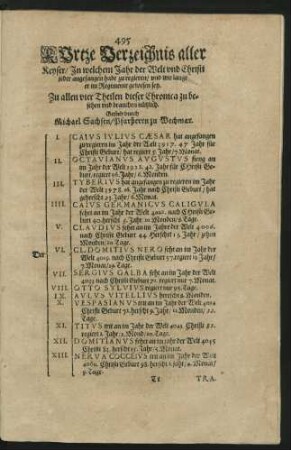 495
KUrtze Verzeichnis aller
Keyser/ In welchem Jahr der Welt vnd Christi
jeder angefangen habe zu regieren/ vnd wie lange
er im Regiment gewesen sey.
Zu allen vier Theilen dieser Chronica zu be-
sehen vnd brauchen nützlich.
Gestelt durch
Michael Sachsen/ Pfarherrn zu Wechmar.
I. CAIUS IULIUS CÆSAR hat angefangen
zu regieren im Jahr der Welt 3917. 47 Jahr für
Christi Geburt/ hat regiert 5. Jahr/ 7 Monat.
II. OCTAVIANUS AUGUSTUS fieng an
im Jahr der Welt 3922. 42. Jahr für Christi Ge-
burt/ regiert 56. Jahr/ 6. Monden.
III. TYBERIUS hat angefangen zu regieren im Jahr
der Welt 3978. 16. Jahr nach Christi Geburt/ hat
geherrscht 23 Jahr/ 6. Monat.
IIII. CAIUS GERMANICUS CALIGULA
fehet an im Jahr der Welt 4001. nach Christi Ge-
burt 40. herscht 3. Jahr/ 10. Monden/
V. CLAUDIUS fehet an im Jahr der Welt 4006.
nach Christi Geburt 44. Herschet 13. Jahr/
Monden/ 20. Tage.
Der
VI. CL. DOMITIUS NERO fehet an im Jahr der
Welt 4019. nach Christi Geburt 57. regiert 13 Jahr/
7. Monat/ Tage.
VII. SERGIUS GALBA feht an im Jahr der Welt
4033 nach Christi Geburt 71. regiert nur 7. Monat.
VIII. OTTO SYLVIUS regiert nur 95. Tage.
IX. AULUS VITELLIUS herscht 8. Monden.
X. VESPASIANUS trit an im Jahr der Welt 4034
Christi Geburt 72. herscht 9. Jahr/ 11. Monden/ 22.
Tage.
XI. TITUS trit an im Jahr der Welt 4043. Christi 81.
regiert 2. Jahr/ 2. Mond/ 20. Tage.
XII. DOMITIANUS fehet an im Jahr der Welt 4045
Christi 83. herscht 15. Jahr/ 5. Monat.
XIII. NERVA COCCEIUS trit an im Jahr der Welt
4060. Christi Geburt 98. herscht 1. Jahr/ 4. Monat/
9. Tage.
TRA.